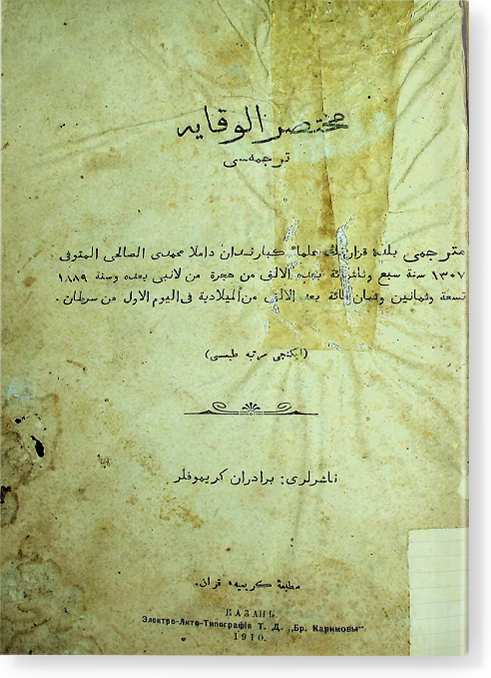 مختصر الوقايه
ترجمه‌سى
مترجمى بلده قزان‌نڭ علماء كبارندان داملا محمدى الصالحى المتوفى
١٣٠٧ سنة سبع وثلثمائة بعد الالف من هجرة من لانبى بعده وسنة ١٨٨٩
تسعة وثمانين وثمان مائة بعد الالف من الميلادية فى اليوم الاول من سرطان ٠
(ايكنجى مرتبه طبعسى)
ناشرلرى: برادران كريموفلر
مطبعۀ كريميه، قزان.
КАЗАНЬ.
Электро-Лито-Типографія Т. Д. „Бр. Каримовы“.
1910.